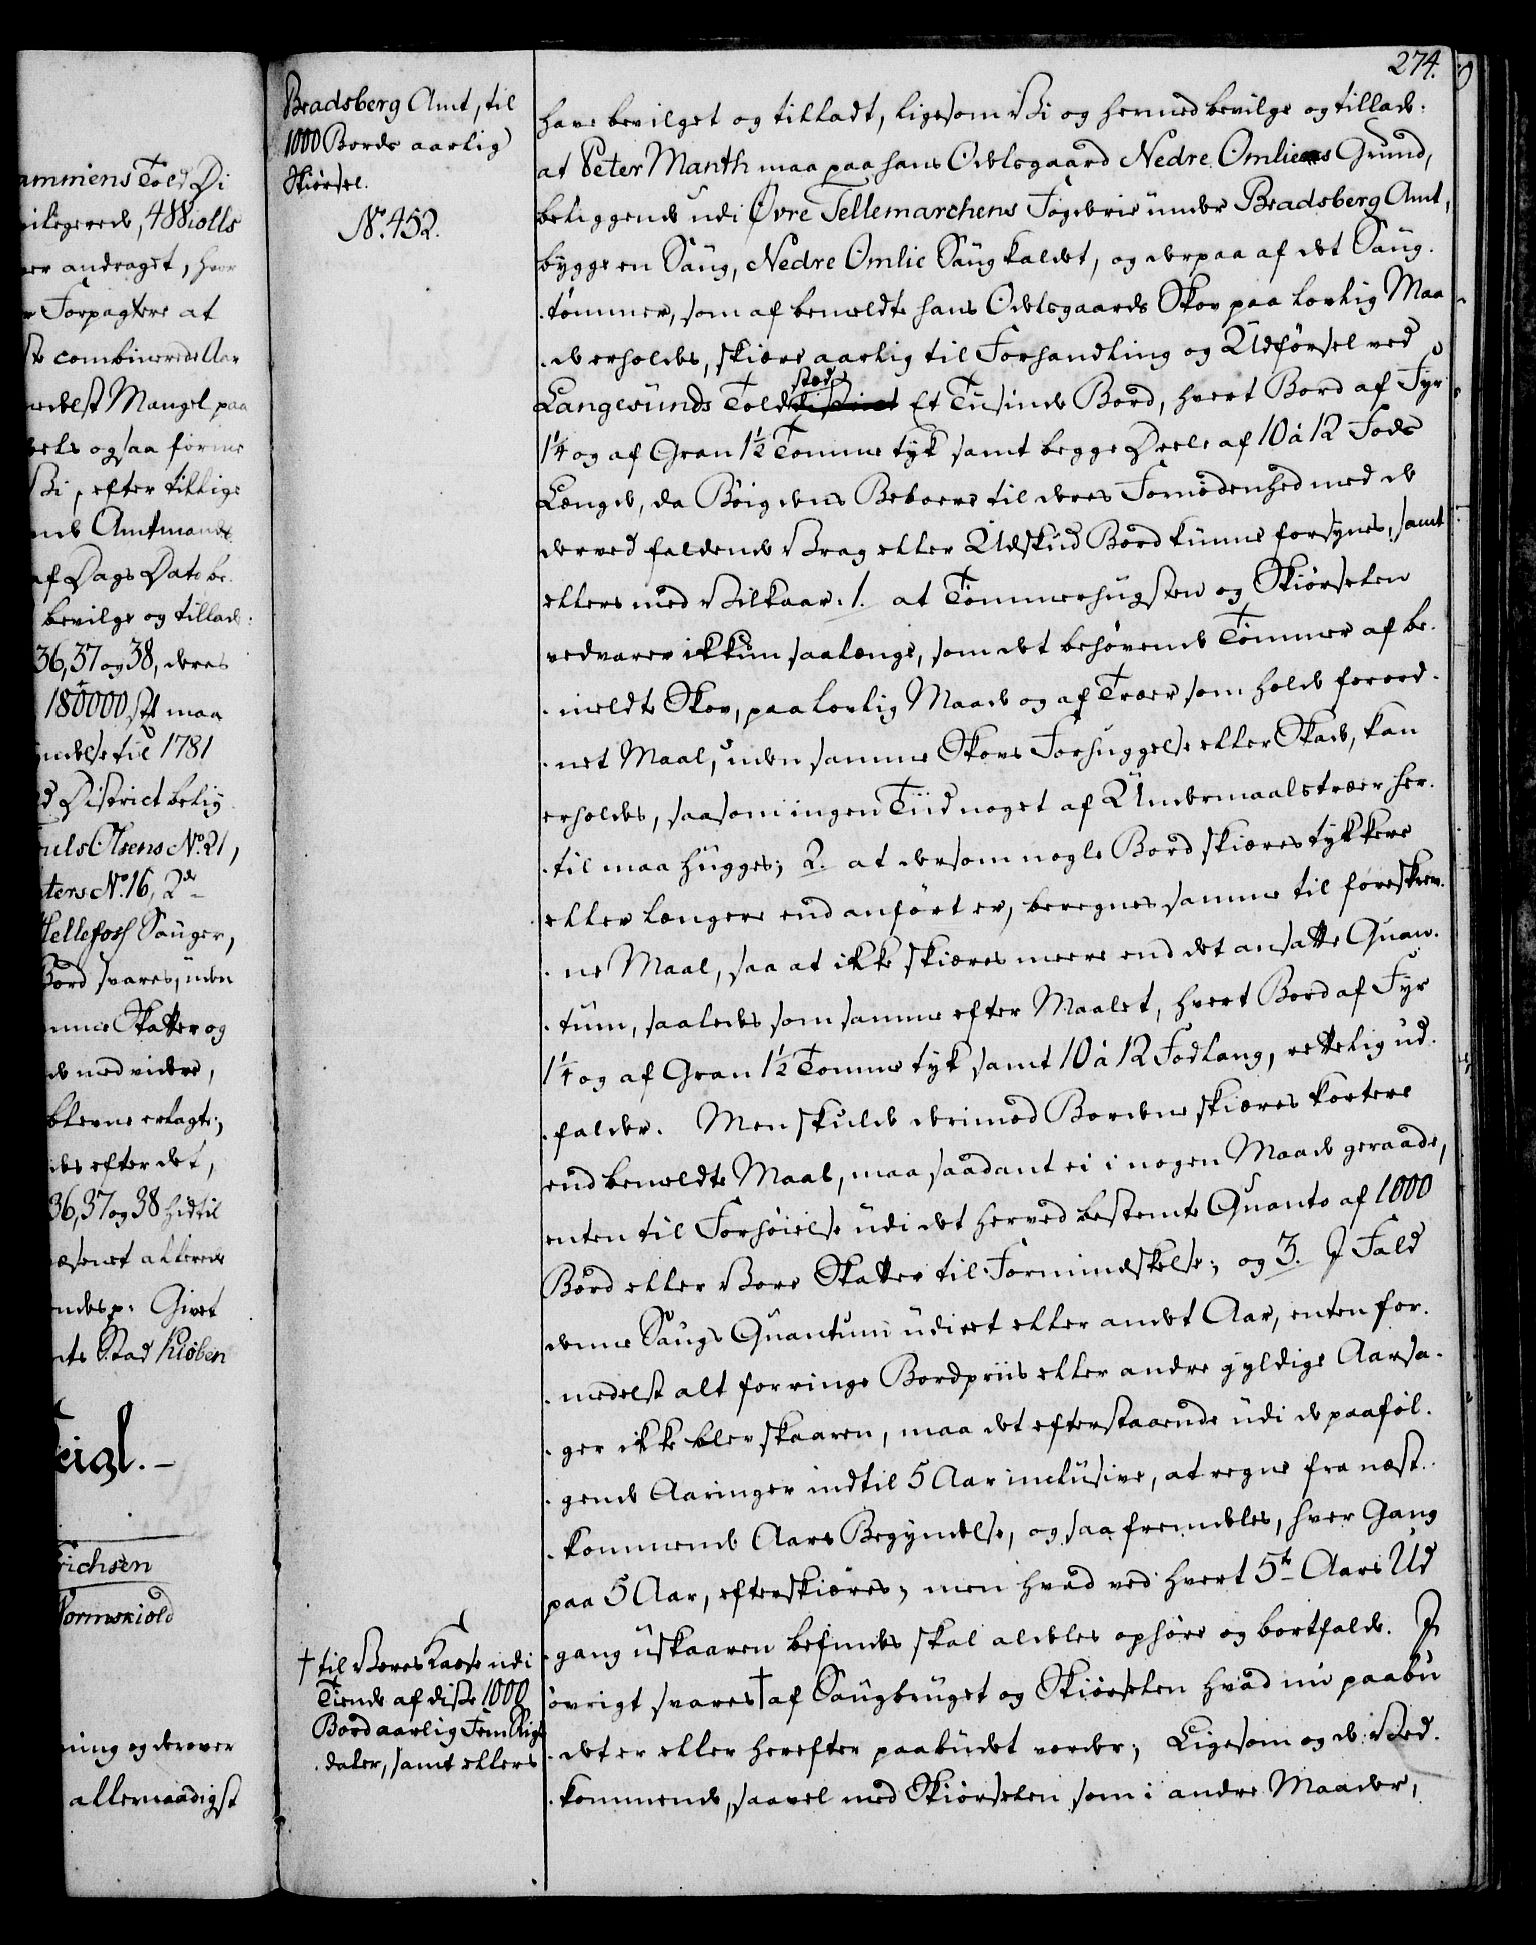 ammens Told Di
vilegerede, 4 Wiolls
ver andraget, hvor
r Forpagtere at
ste combinerede Aar
medelst Mangel paa
deels ogsaa forme
Vi, efter tillige
ende Amtmands
af Dags Dato be-
bevilge og tillade:
36, 37 og 38, deres
180000 st maa
yndelse til 1781
d District belig
Juls Olsens No. 21,
ters No. 16, 2de
Hellefoss Sauger,
Bord svares, uden
mme Skatter og
de med videre,
blevne erlagte;
des efter det,
36, 37 og 38 hidtil
æsenet allerede
endes p: Givet
nts Stad Kiöben
Feigl.-
Erichsen
Wormskiold
ning og derover
allernaadigst
Bradsberg Amt, til
1000 Bords aarlig
Skiørsel.
No. 452.
274.
have bevilget og tilladt, ligesom Vi og hermed bevilge og tillade:
at Peter Manth maa paa hans Odelsgaard Nedre Omliens Grund,
beliggende udi Øvre Tellemarchens Fogderie under Bradsberg Amt,
bygge en Saug, Nedre Omlie Saug kaldet, og derpaa af det Saug-
tømmer, som af bemeldte hans Odelsgaards Skov paa lovlig Maa-
de erholdes, skiære aarlig til Forhandling og Udførsel ved
sted
Langesunds Tolddistrict Et Tusinde Bord, hvert Bord af Fyr
1¼ og af Gran 1½ Tomme tyk samt begge Deele af 10 á 12 Fods
Længde, da Bøigdens Beboere til deres Fornødenhed med de
derved faldende Vrag eller Udskud Bord kunne forsynes, samt
ellers med Vilkaar: 1. at Tømmerhugsten og Skiørselen
vedvarer ikkun saalænge, som det behøvende Tømmer af be-
meldte Skov, paa lovlig Maade og af Træer som holde forord-
net Maal, uden samme Skovs Forhuggelse eller Skade, kan
erholdes, saasom ingen Tiid noget af Undermaalstræer her-
til maa hugges; 2. at dersom nogle Bord skiæres tykkere
eller længere end anført er, beregnes samme til foreskrev-
ne Maal, saa at ikke skiæres meere end det ansatte Quan-
tum, saaledes som samme efter Maalet, hvert Bord af Fyr
1¼ og af Gran 1½ Tomme tyk samt 10 á 12 Fod lang, rettelig ud-
falder. Men skulde derimod Bordene skiæres kortere
end bemeldte Maal, maa saadant ei i nogen Maade geraade,
enten til Forhøielse udi det herved bestemte Quanto af 1000
Bord eller Vore Skatter til Formindskelse; og 3. I Fald
denne Saugs Quantum udi eet eller andet Aar, enten for-
medelst alt for ringe Bordpriis eller andre gyldige Aarsa-
ger ikke blev skaaren, maa det efterstaaende udi de paaføl-
gende Aaringer indtil 5 Aar inclusive, at regne fra næst-
kommende Aars Begyndelse, og saa fremdeles, hver Gang
paa 5 Aar, efterskiæres; men hvad ved hvert 5te Aars Ud-
gang uskaaren befindes skal aldeles ophøre og bortfalde. I
øvrigt svares † af Saugbruget og Skiørselen hvad nu paabu-
det er eller herefter paabudet vorder; Ligesom og de Ved-
kommende, saavel med Skiørselen som i andre Maader,
† til Vores Kasse udi
Tiende af disse 1000
Bord aarlig Fem Rigs-
daler, samt ellers